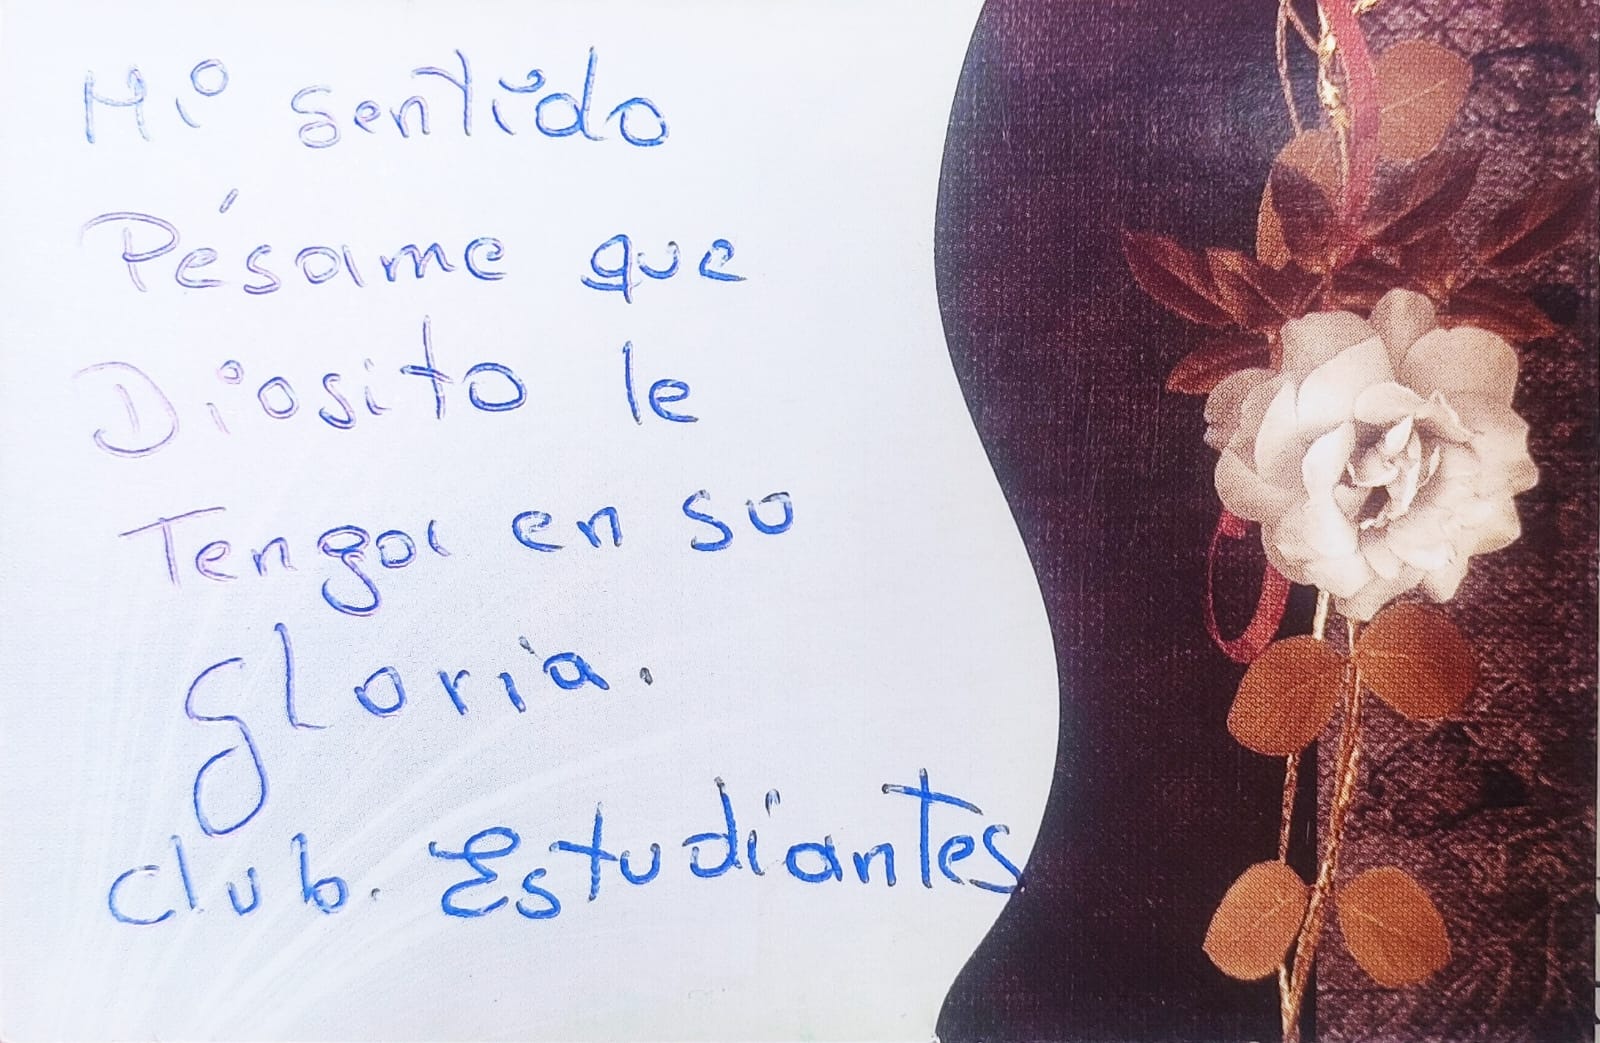 Mi sentido
Pésame que
Diosito le
Tenga en su
gloria.
club. Estudiantes